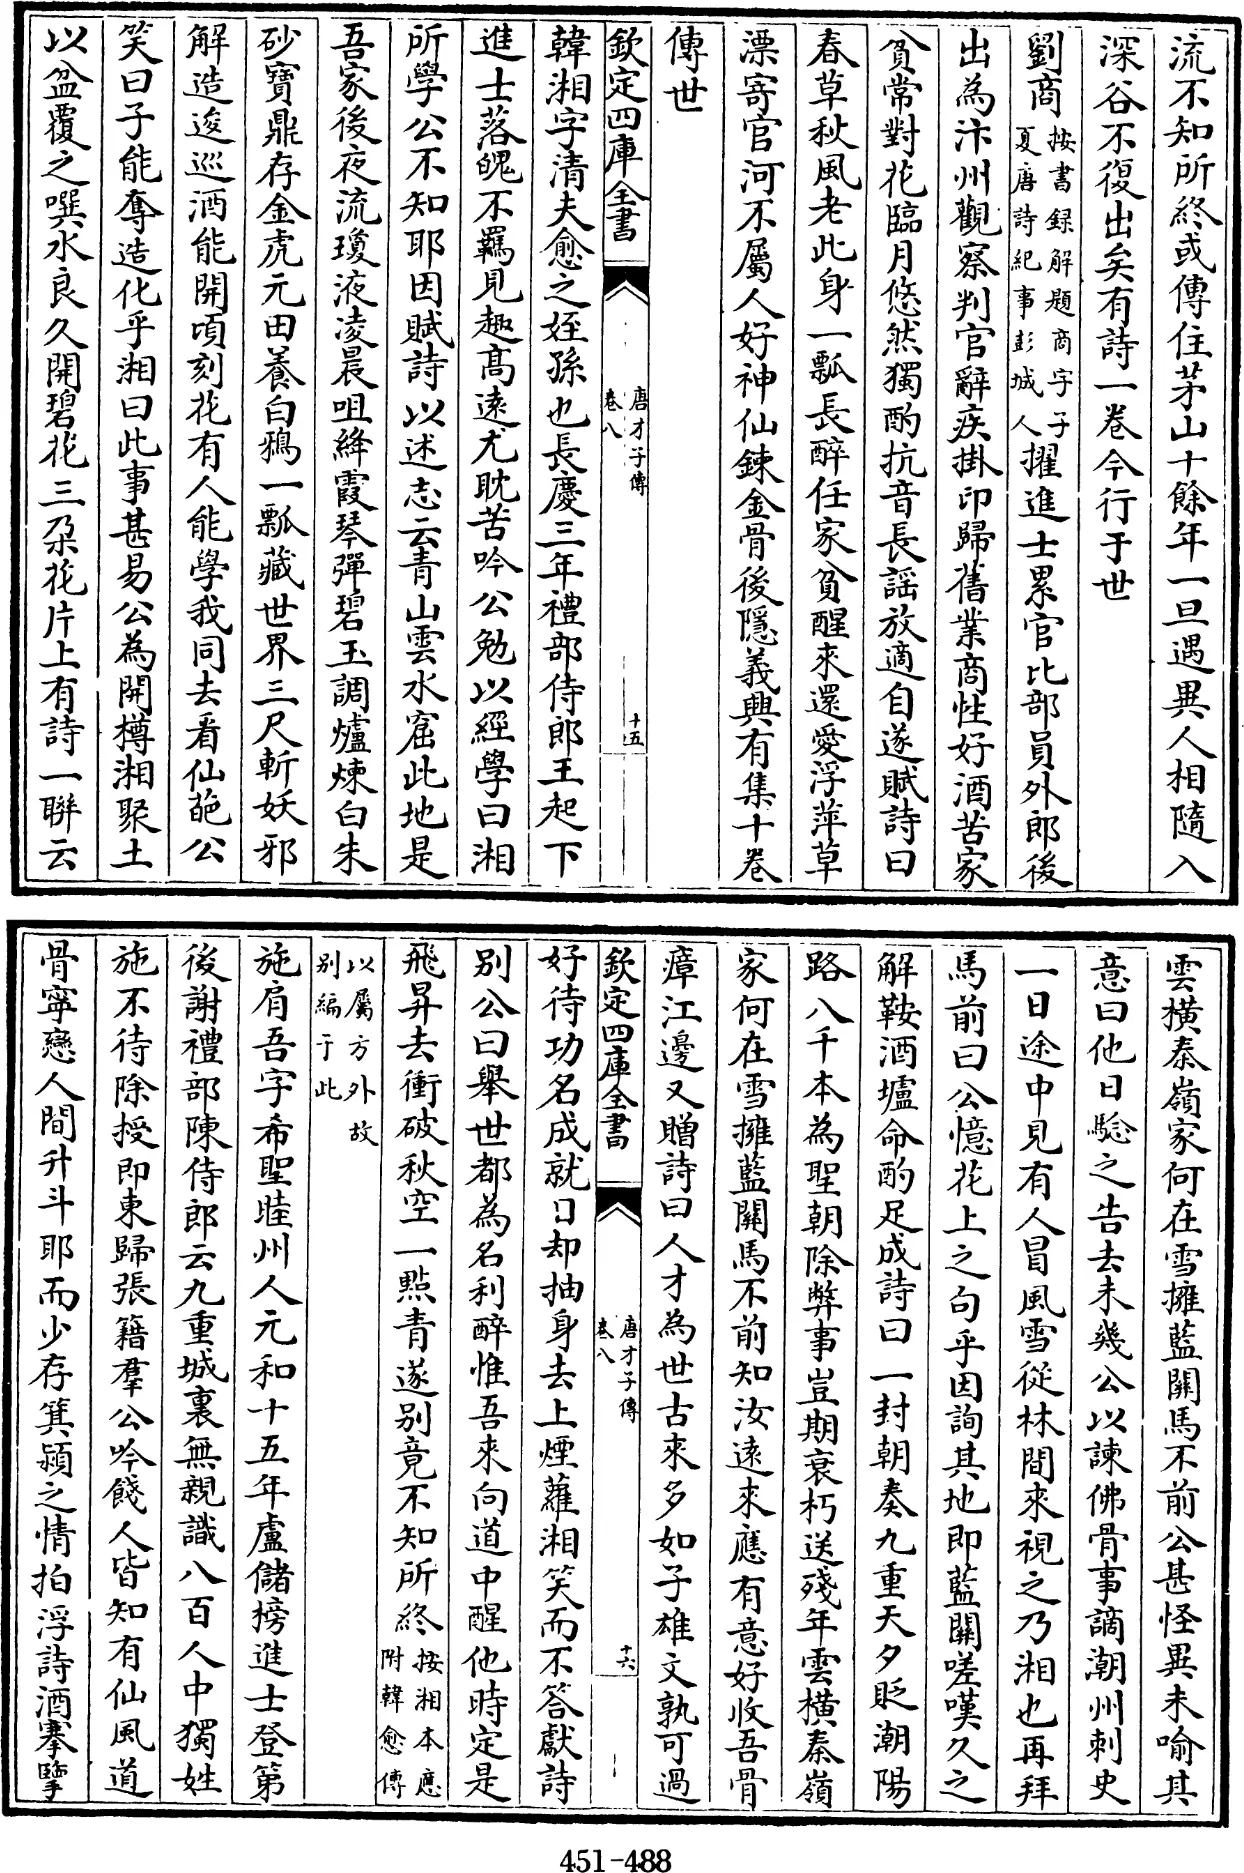 流不知所終或傳住茅山十餘年一旦遇異人相隨入
深谷不復出矣有詩一卷今行于世
劉商按書録解題商字子夏唐詩紀事彭城人擢進士累官比部員外郎後
出為汴州觀察判官辭疾掛印歸舊業商性好酒苦家
貧常對花臨月悠然獨酌抗音長謡放適自遂賦詩曰
春草秋風老此身一瓢長醉任家貧醒來還愛浮萍草
漂寄官河不屬人好神仙鍊金骨後隱義興有集十卷
傳世
欽定四庫全書
唐才子傳
卷八
十五
韓湘字清夫愈之姪孫也長慶三年禮部侍郎王起下
進士落魄不羈見趣髙逺尤耽苦吟公勉以經學曰湘
所學公不知耶因賦詩以述志云青山雲水窟此地是
吾家後夜流瓊液凌晨咀絳霞琴彈碧玉調爐煉白朱
砂寶鼎存金虎元田養白鴉一瓢藏世界三尺斬妖邪
解造逡巡酒能開頃刻花有人能學我同去看仙葩公
笑曰子能奪造化乎湘曰此事甚易公為開樽湘聚土
以盆覆之噀水良久開碧花三朶花片上有詩一聯云
雲横秦嶺家何在雪擁藍闗馬不前公甚怪異未喻其
意曰他日驗之告去未幾公以諫佛骨事謫潮州刺史
一日途中見有人冒風雪從林間來視之乃湘也再拜
馬前曰公憶花上之句乎因詢其地即藍闗嗟嘆久之
解鞍酒壚命酌足成詩曰一封朝奏九重天夕貶潮陽
路八千本為聖朝除弊事豈期衰朽送殘年雲横秦嶺
家何在雪擁藍闗馬不前知汝逺來應有意好收吾骨
瘴江邊又贈詩曰人才為世古來多如子雄文孰可過
欽定四庫全書
唐才子傳
卷八
十六
好待功名成就日却抽身去上煙蘿湘笑而不答獻詩
别公曰舉世都為名利醉惟吾來向道中醒他時定是
飛昇去衝破秋空一㸃青遂别竟不知所終按湘本應附韓愈傳
以屬方外故别編于此
施肩吾字希聖睦州人元和十五年盧儲榜進士登第
後謝禮部陳侍郎云九重城裏無親識八百人中獨姓
施不待除授即東歸張籍羣公吟餞人皆知有仙風道
骨寧戀人間升斗耶而少存箕潁之情拍浮詩酒搴擘
451-488